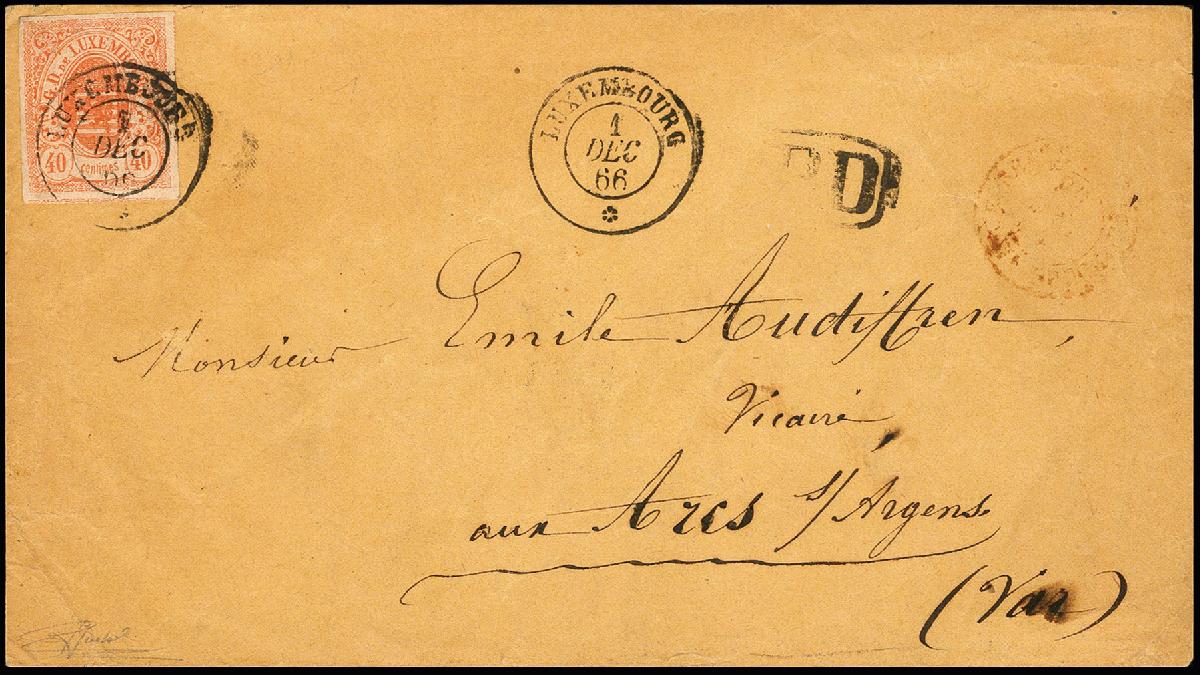 G. D. DE LUXEMB
40 centimes 40
LUXEMBOURG
1
DEC
66
LUXEMBOURG
1
DEC
66
PD
Monsieur Emile Audiffren,
Vicaire,
aux Arcs s/ Argens
(Var)